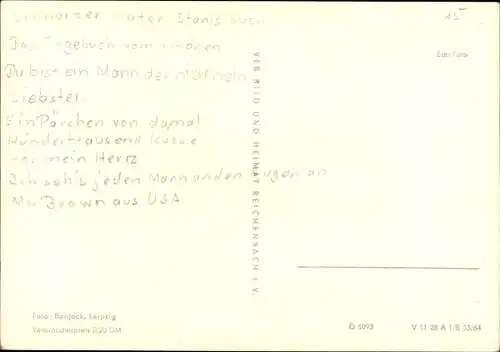 Schwarzer Kater Stanislaus..
15
Das Tagebuch vom
Du bist ein Mann der nicht nein
Liebster.
Ein Pärchen von damal
Hunderttausend Kusse
mein Herrz
Ich seh's jeden Mann an den Augen an
Mr. Brown aus USA
Echt Foto
VEB BILD UND HEIMAT REICHENBACH I. V.
Foto: Bonjack, Leipzig
Verbraucherpreis 0,20 DM
G 6093
V 11 28 A 1/B 33/64